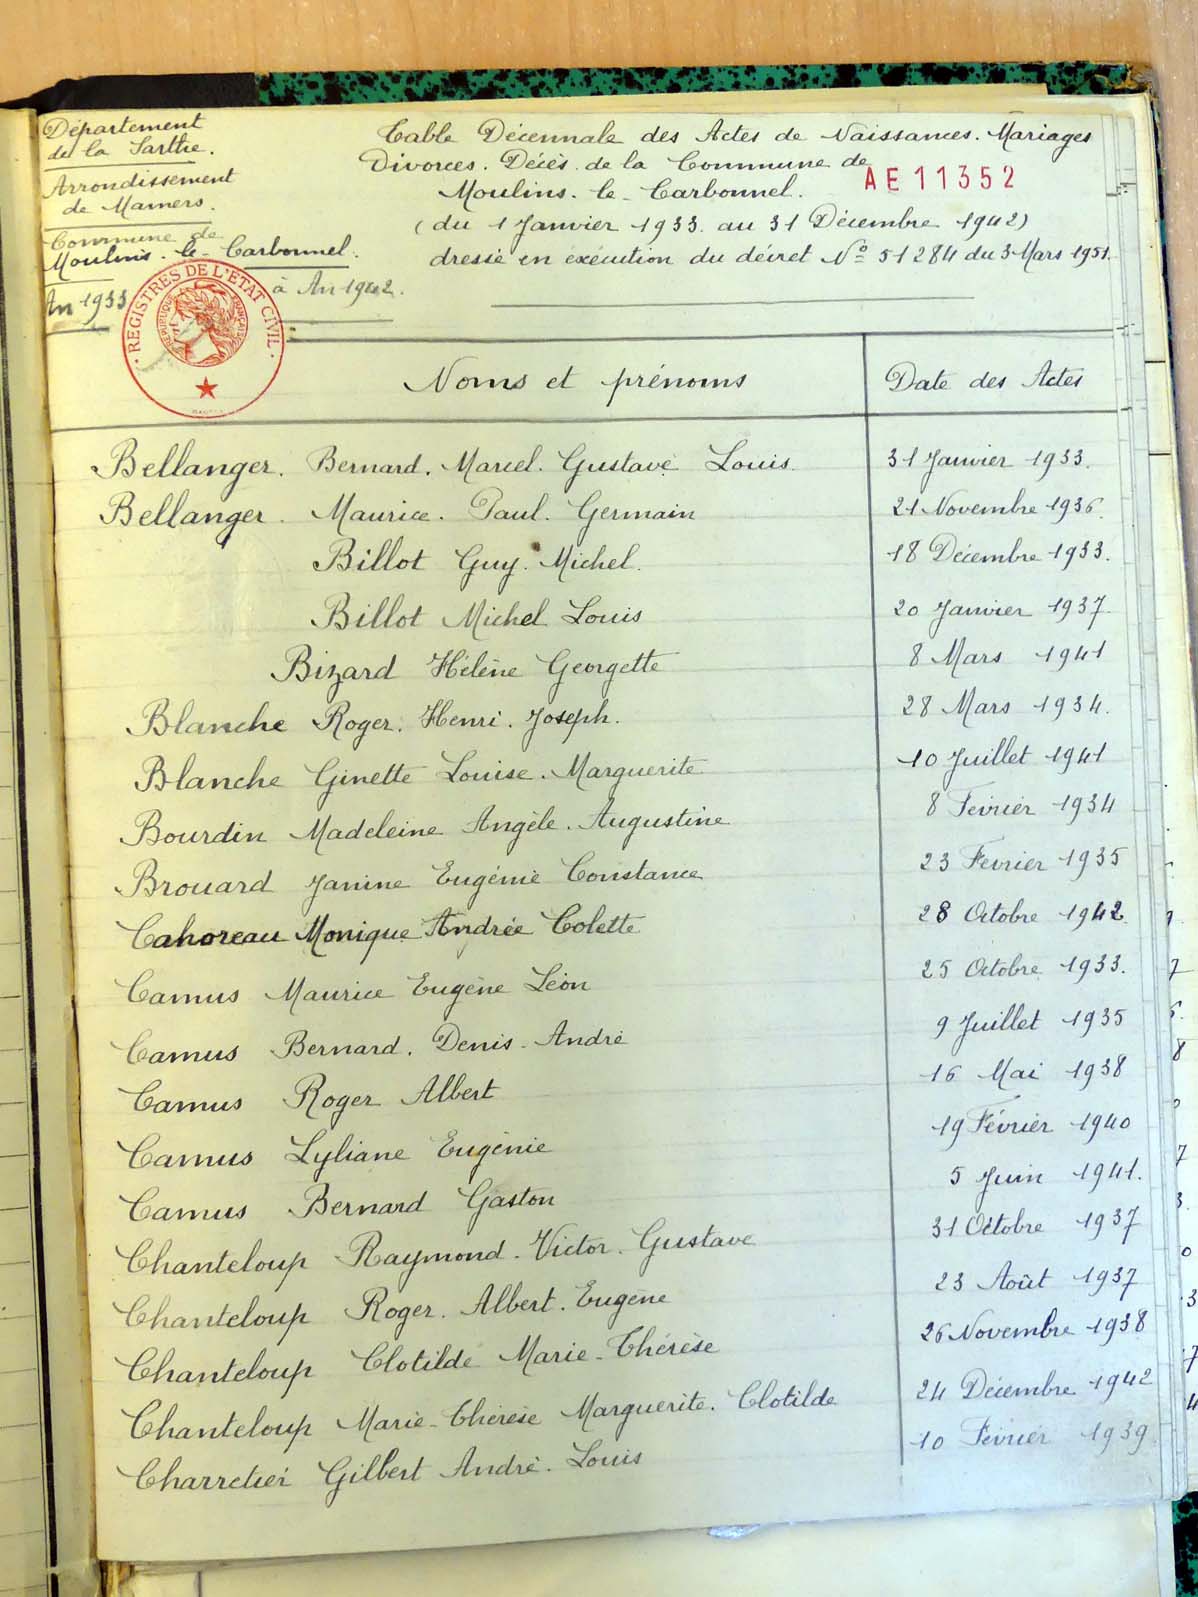 Département
de la Sarthe.
Arrondissement
de Mamers.
Commune de
Moulins-le-Carbonnel.
An 1933 à An 1942.
Table Décennale des Actes de Naissances. Mariages
Divorces. Décès de la Commune de
Moulins-le-Carbonnel.
AE11352
(du 1 Janvier 1933 au 31 Décembre 1942)
dressée en exécution du décret No 51284 du 3 Mars 1951.
REGISTRES DE L'ETAT CIVIL
REPUBLIQUE FRANÇAISE
Noms et prénoms Date des Actes
Bellanger. Bernard. Marcel. Gustave Louis 31 Janvier 1933.
Bellanger. Maurice. Paul. Germain 21 Novembre 1936.
Billot Guy. Michel. 18 Décembre 1933.
Billot Michel Louis 20 Janvier 1937
Bizard Hélène Georgette 8 Mars 1941
Blanche Roger. Henri. Joseph. 28 Mars 1934.
Blanche Ginette Louise. Marguerite 10 Juillet 1941
Bourdin Madeleine Angèle. Augustine 8 Février 1934
Brouard Janine Eugénie Constance 23 Février 1935
Cahoreau Monique Andrée Colette 28 Octobre 1942
Camus Maurice Eugène Léon 25 Octobre 1933.
Camus Bernard. Denis. André 9 Juillet 1935
Camus Roger Albert 16 Mai 1938
Camus Lyliane Eugénie 19 Février 1940
Camus Bernard Gaston 5 Juin 1941.
Chanteloup Raymond. Victor. Gustave 31 Octobre 1937
Chanteloup Roger. Albert. Eugène 23 Août 1937
Chanteloup Clotilde Marie-Thérèse 26 Novembre 1938
Chanteloup Marie-Thérèse Marguerite. Clotilde 24 Décembre 1942
Charretier Gilbert André. Louis 10 Février 1939